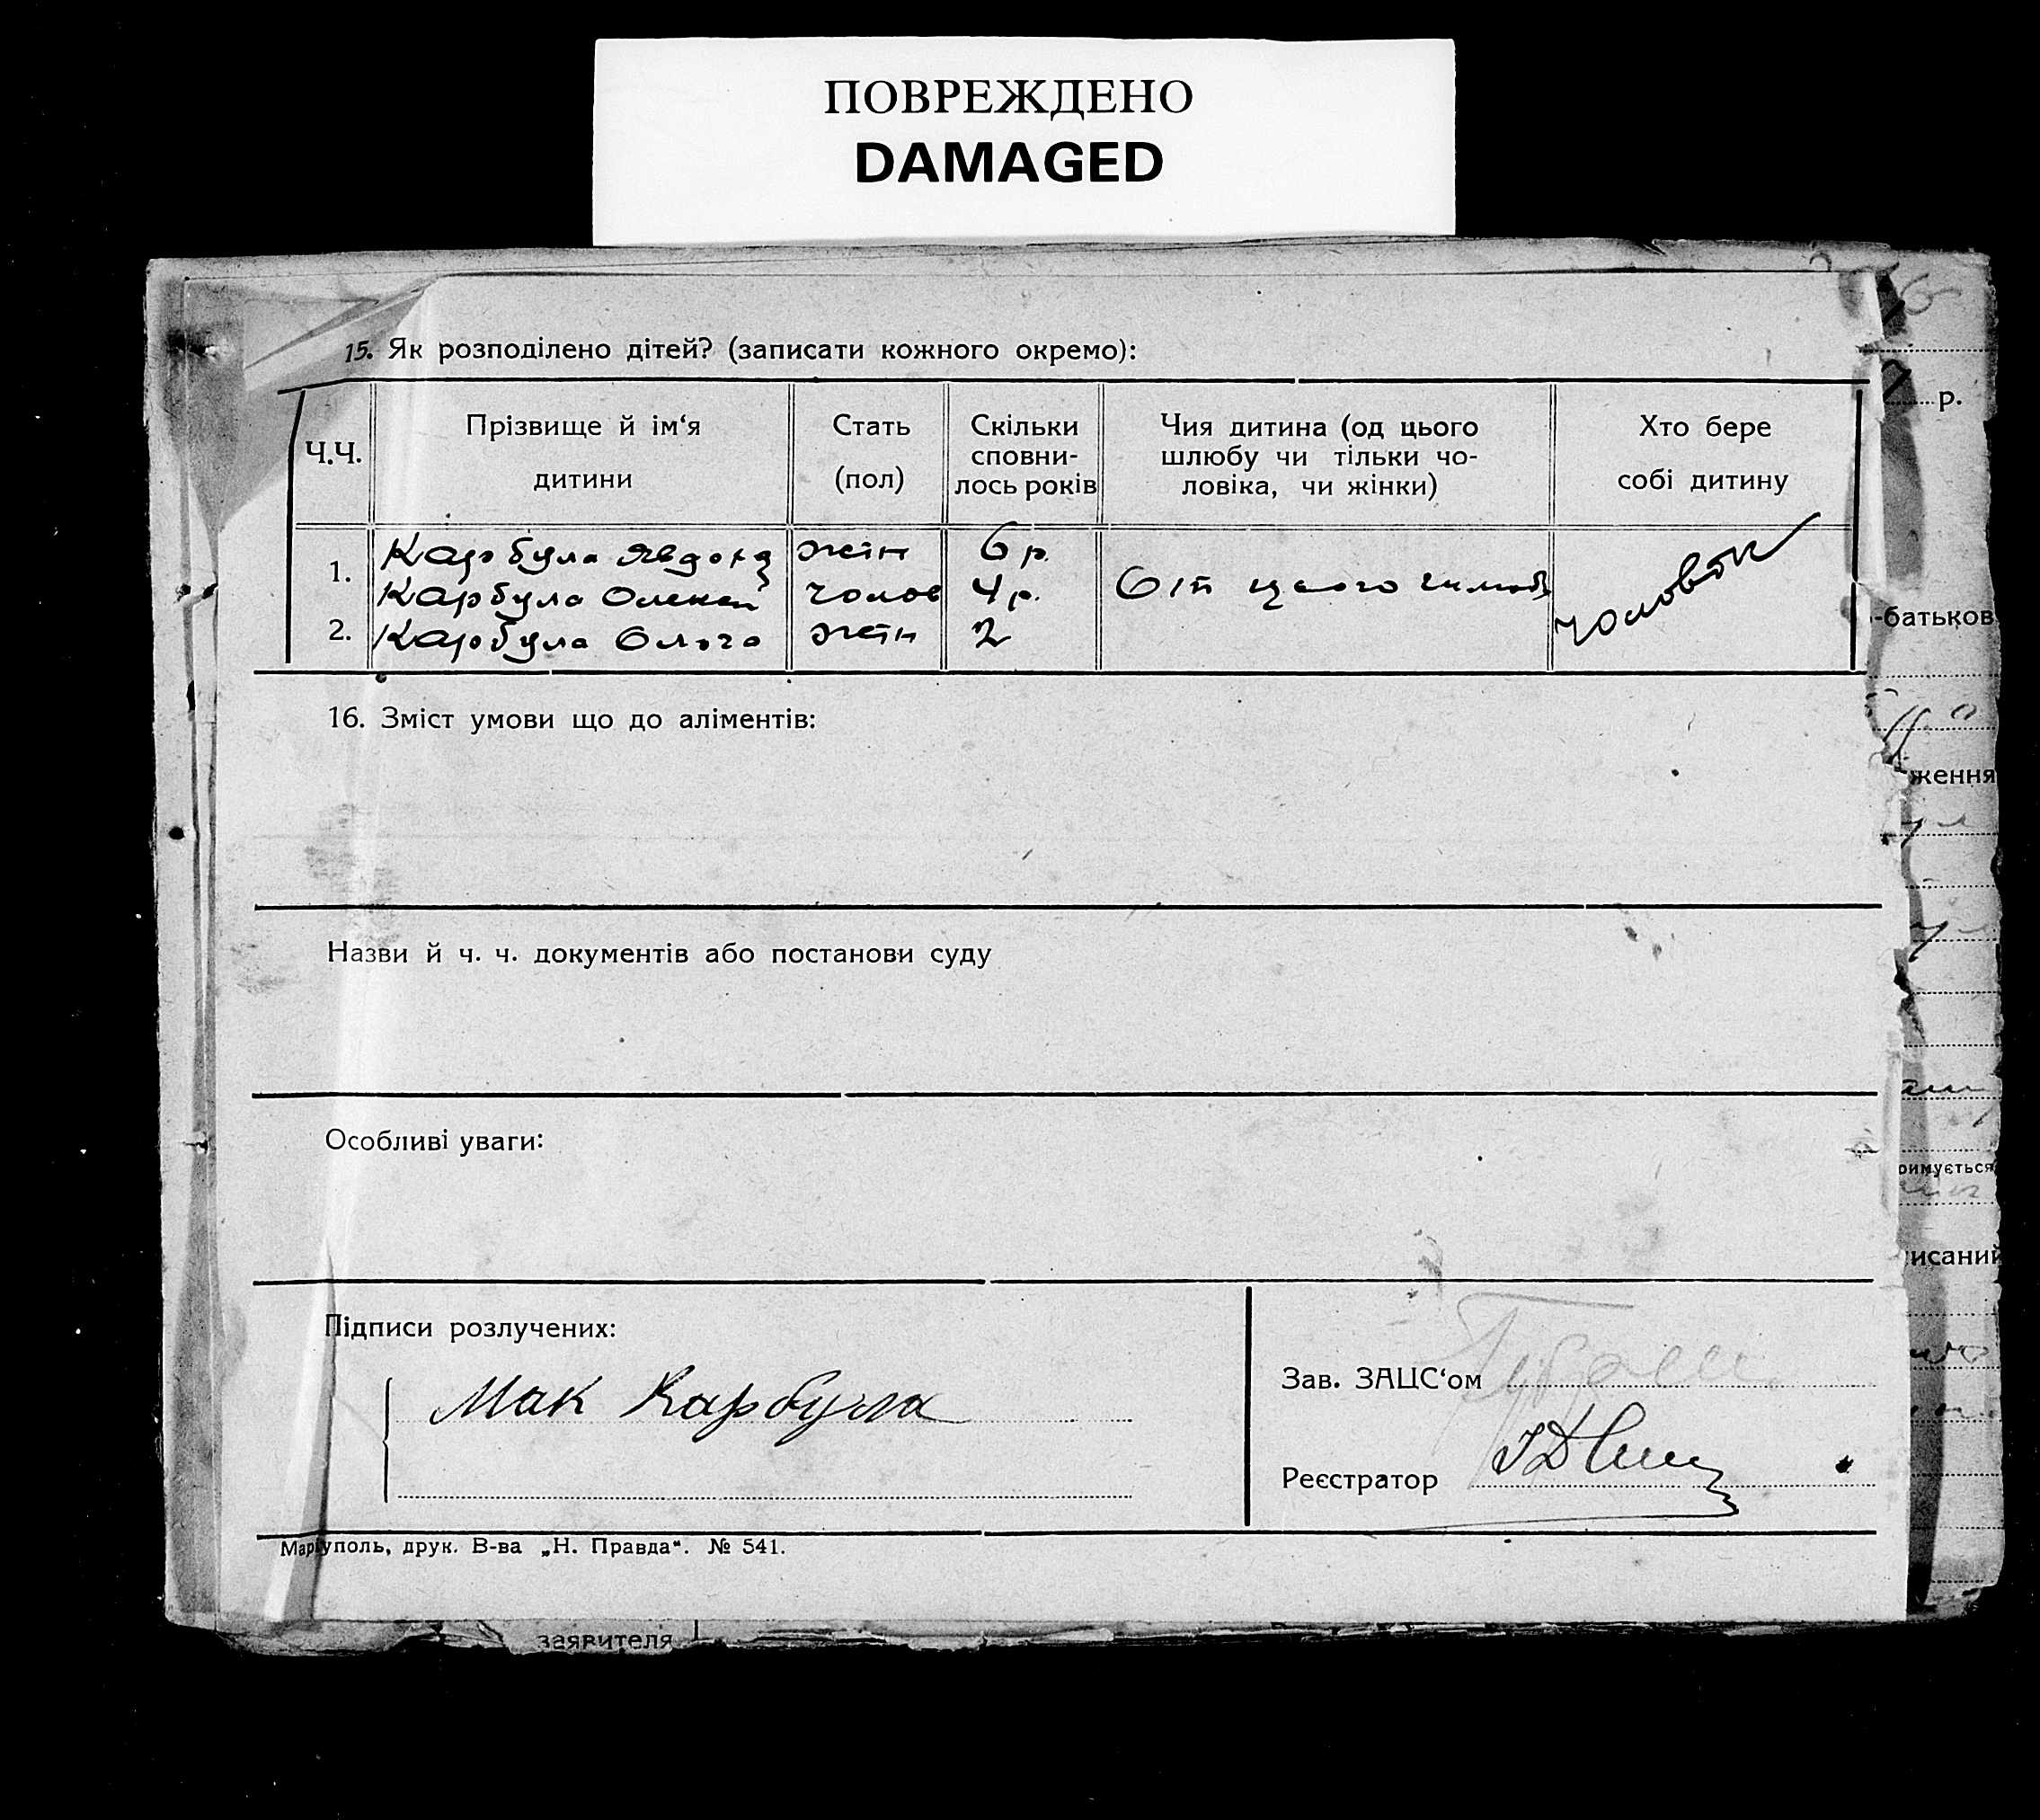 ПОВРЕЖДЕНО
DAMAGED
15. Як розподілено дітей? (записати кожного окремо):
Ч.Ч.
Прізвище й ім‘я
дитини
Стать
(пол)
Скільки
сповни-
лось років
Чия дитина (од цього
шлюбу чи тільки чо-
ловіка, чи жінки)
Хто бере
собі дитину
р.
1.
Карбула Явдоха жін 6 р.
Карбула Олексій чолов 4 р. Від цього шлюбу чоловік
2. Карбула Ольга жін 2
-батьков
16. Зміст умови що до аліментів:
ження
Назви й ч. ч. документів або постанови суду
Особливі уваги:
римується
исаний
Підписи розлучених:
Мак Карбула
Зав. ЗАЦС‘ом
Реєстратор
Маріуполь, друк. В-ва „Н. Правда“. № 541.
заявителя